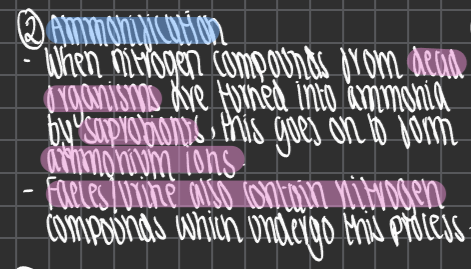 ② Ammonification
- When nitrogen compounds from dead
organisms are turned into ammonia
by saprobionts, this goes on to form
ammonium ions
- Faeces/urine also contain nitrogen
compounds which undergo this process.